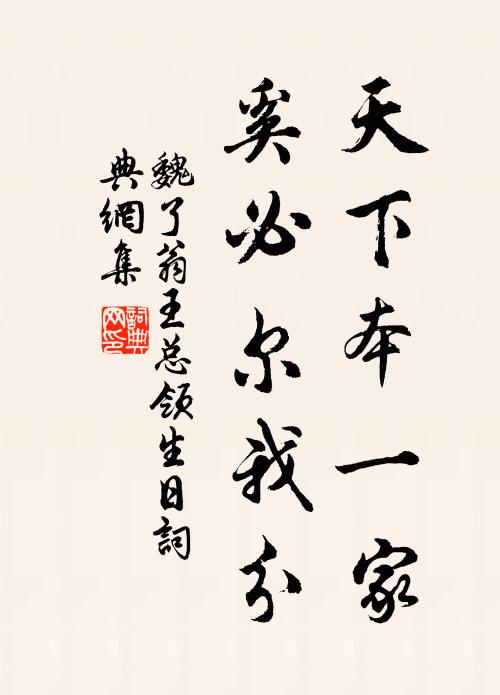 天下本一家
奚必尔我分
魏了翁王总领生日詞
典網集
詞典网印